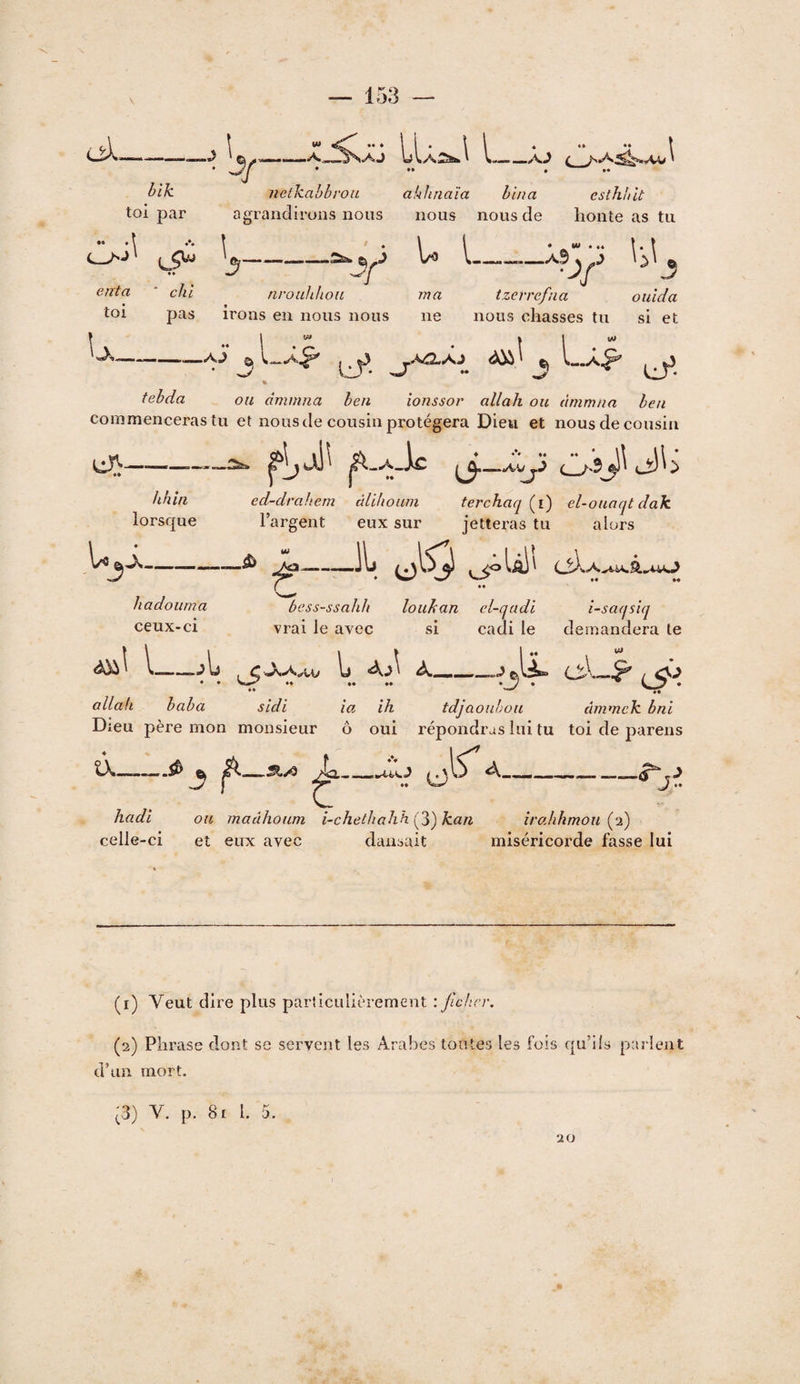 — 153 —
استحقيت بنا احنايا نتكبّروا بيك
bik netkabbrou ahhnaïa bina esthhit
toi par agrandirons nous nous nous de honte as tu
وإذا تزرّفنا ما نروحوا شي انت
enta chi nrouhhou ma tzerrefna ouida
toi pas irons en nous nous ne nous chasses tu si et
بن عمّنا و الله ينصر بن عمّنا و تبدا
tebda ou âmmna ben ionssor allah ou âmmna ben
commenceras tu et nous de cousin protégera Dieu et nous de cousin
ذاك الوقت ترشق عليهم الدراهم حين
hhin ed-drahem âlihoum terchaq (1) el-ouaqt dak
lorsque l'argent eux sur jetteras tu alors
يسقسيك القاضي لوكان بالصّح هدوما
hadouma bess-ssahh loukan el-qadi i-saqsiq
ceux-ci vrai le avec si cadi le demandera te
بني عمّك تجاوبه ايه يا سيدي بابا الله
allah baba sidi ia ih tdjaoubou âmmck bni
Dieu père mon monsieur ô oui répondras lui tu toi de parens
يرحمه كان يشطح معهم و هذي
hadi ou maâhoum i-chethahh (3) kan irahhmou (2)
celle-ci et eux avec dansait miséricorde fasse lui
(1) Veut dire plus particulièrement : ficher.
(2) Phrase dont se servent les Arabes toutes les fois qu'ils parlent
d'un mort.
(3) V. p. 81 l. 5.
20